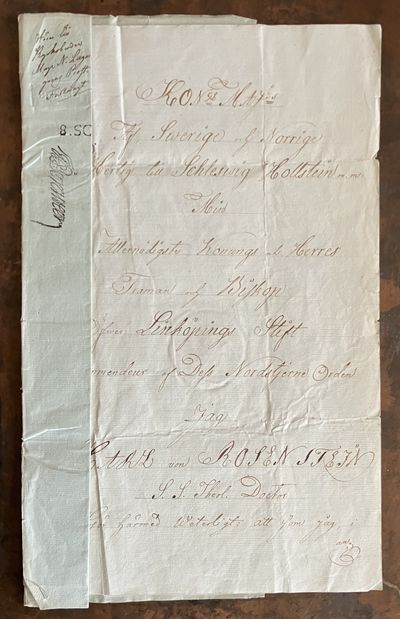 till
KON^GS MAJ^TS
Af Swerige och Norrige
Hertig till Schlesvig Hollstein m. m.
Min
Allernådigste Konungs och Herres
Troman och Biskop
öfver Linköpings Stift
Commendeur af Dess Nordstjerne Orden
Jag
CARL von ROSENSTEIN
S. S. Theol. Doctor
Gör härmed Veterligt: att som jag, i